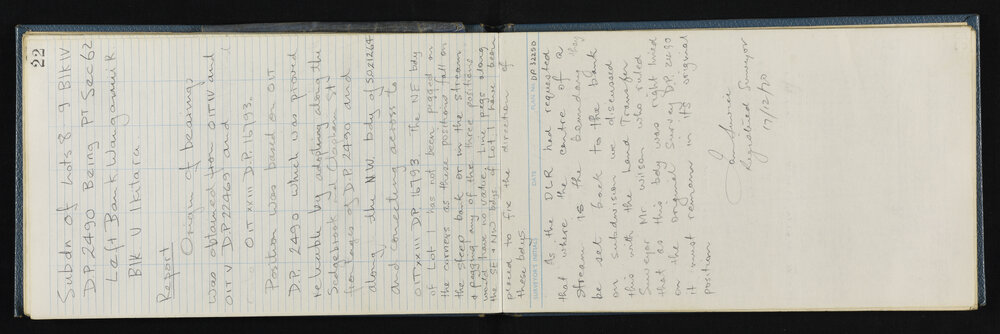 22
Subdn of Lots 8 & 9 Blk IV
D.P. 2490 Being Pt Sec 62
Left Bank Wanganui R.
Blk V Ikitara
Report
Origin of bearings
was obtained from OIT IV and
OIT V D.P. 22469 and
OIT XXIII D.P. 16193.
Position was based on OIT
D.P. 2490 which was proved
reliable by adopting along the
Sedgebrook and Clapham St
frontages of D.P. 2490 and
along the N.W. bdy of SO21264
and connecting across to
OIT XXIII DP 16193 The NE bdy
of Lot 1 has not been pegged on
the corners as these positions fall on
the steep bank or in the stream
& pegging any of the three positions
would have no value. Line pegs along
the SE & NW bdys of Lot 1 have been
placed to fix the direction of
these bdys.
SURVEYOR'S INITIALS
DATE
PLAN No. DP 32250
As the DLR had requested
that where the centre of a
stream is the boundary they
be set back to the bank
on subdivision we discussed
this with the Land Transfer
Surveyor Mr Wilson who ruled
that as this bdy was right lined
on the original Survey D.P. 2490
it must remain in its original
position
Registered Surveyor
17/12/70